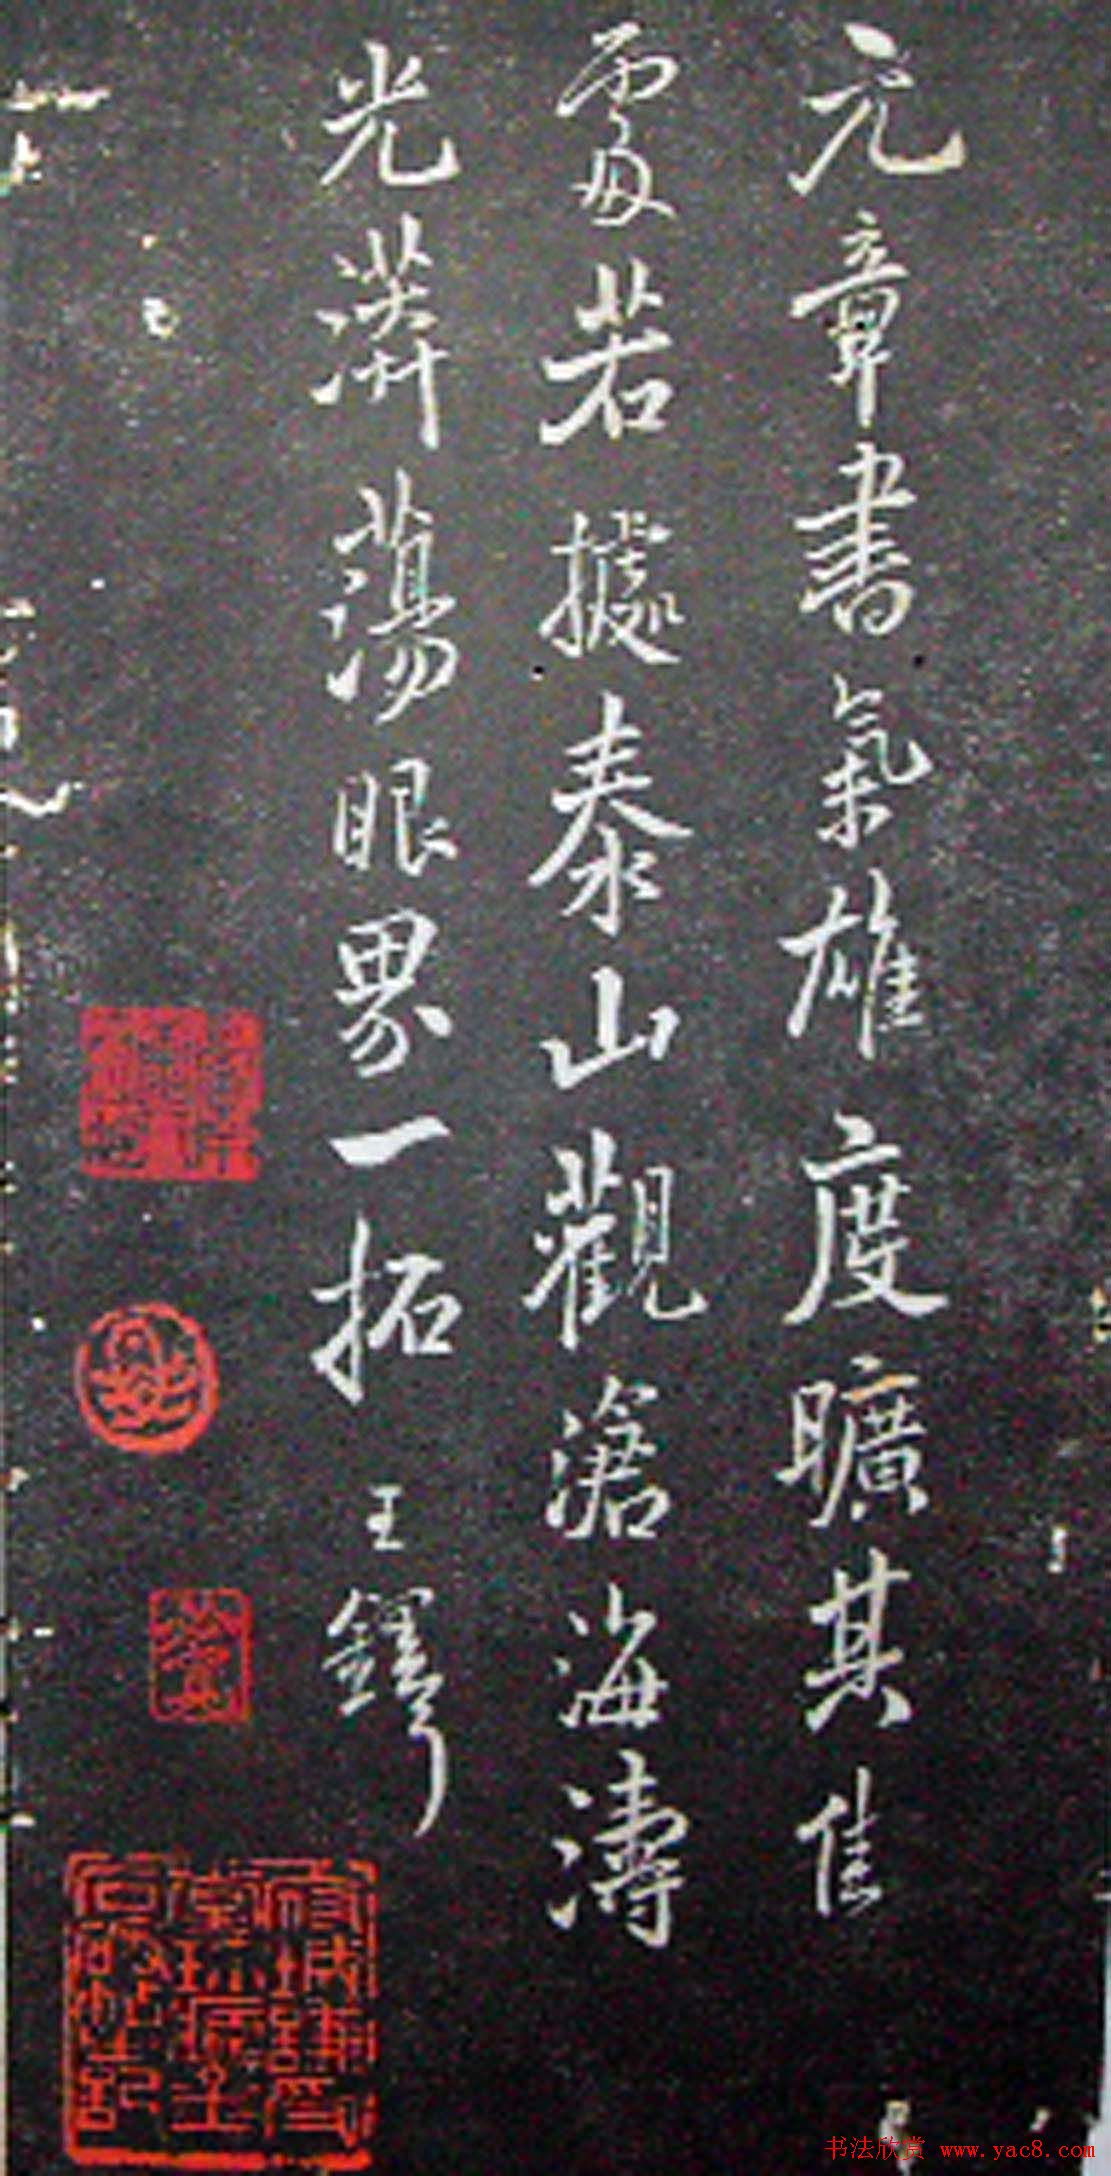 元章書氣雄度曠其佳
處若據泰山觀滄海濤
光漭蕩眼界一拓
王鐸
书法欣赏 www.yac8.com